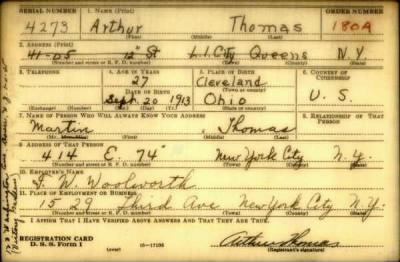 SERIAL NUMBER 1. NAME (Print) ORDER NUMBER
4273 Arthur Thomas 180A
(First) (Middle) (Last)
2. ADDRESS (Print)
41-05 12" St L.I.City Queens N.Y.
(Number and street or R. F. D. number) (Town) (County) (State)
3. TELEPHONE 4. AGE IN YEARS 5. PLACE OF BIRTH 6. COUNTRY OF CITIZENSHIP
27 Cleveland
DATE OF BIRTH (Town or county)
Sept. 20 1913 Ohio U. S.
(Exchange) (Number) (Mo.) (Day) (Yr.) (State or country)
7. NAME OF PERSON WHO WILL ALWAYS KNOW YOUR ADDRESS 8. RELATIONSHIP OF THAT PERSON
Martin Thomas
(First) (Middle) (Last)
9. ADDRESS OF THAT PERSON
414 E. 74" New York City N.Y.
(Number and street or R. F. D. number) (Town) (County) (State)
10. EMPLOYER'S NAME
F. W. Woolworth
11. PLACE OF EMPLOYMENT OR BUSINESS
1529 Third Ave New York City N.Y.
(Number and street or R. F. D. number) (Town) (County) (State)
I AFFIRM THAT I HAVE VERIFIED ABOVE ANSWERS AND THAT THEY ARE TRUE.
REGISTRATION CARD
D. S. S. Form 1 16-17105 Arthur Thomas
(Registrant's signature)